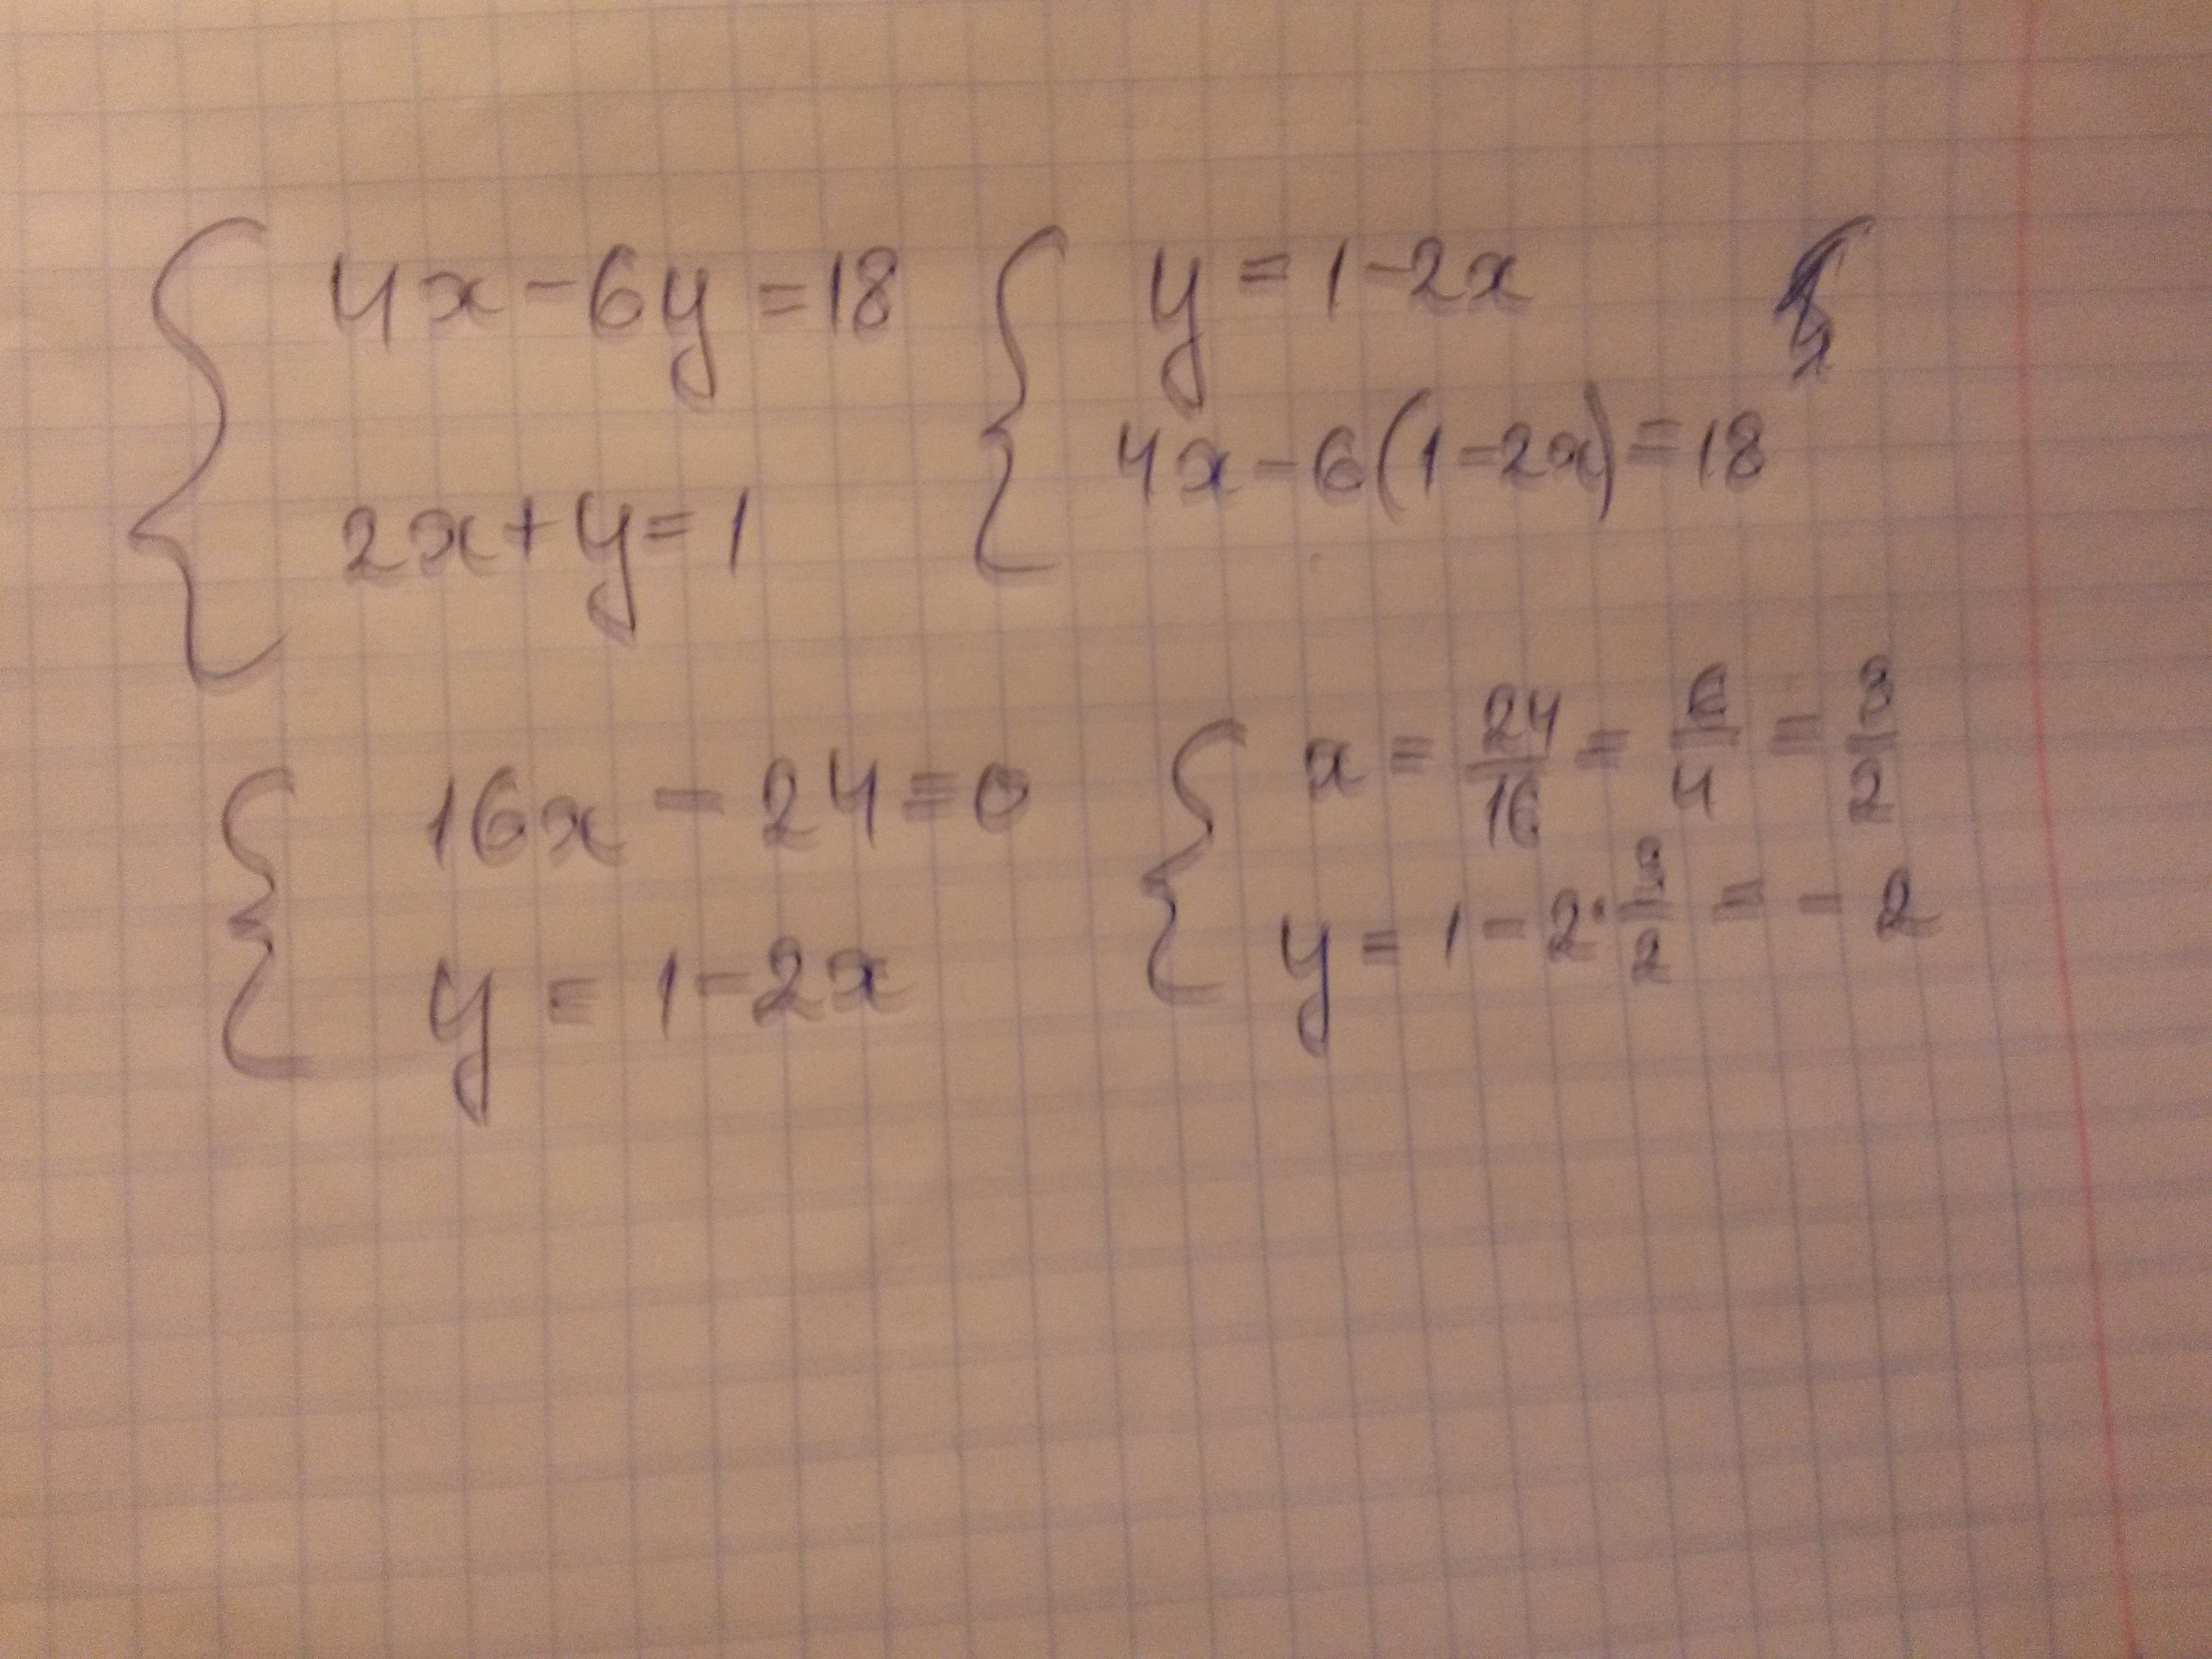 4x-6y=18
2x+y=1
y=1-2x
4x-6(1-2x)=18
16x-24=0
y=1-2x
x=24/16=6/4=3/2
y=1-2·3/2=-2